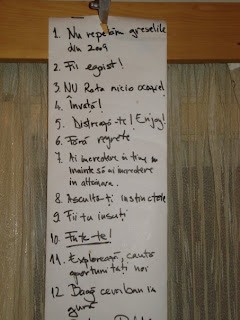 1. Nu repetăm greșelile
din 2009
2. Fii egoist!
3. NU Rata nicio ocazie!
4. Învață!
5. Distrează-te! Enjoy!
6. Fără regrete
7. Ai încredere în tine
înainte să ai încredere
în altcineva.
8. Ascultă-ți instinctele
9. Fii tu însuți
10. -te!
11. Explorează, caută
oportunități noi
12. Bagă ceva în
gură